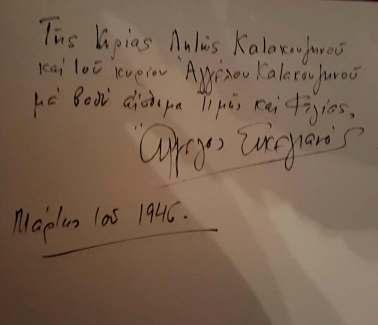 Τῆς Κυρίας Λητῶς Κατακουζηνοῦ
καὶ τοῦ κυρίου Ἀγγέλου Κατακουζηνοῦ
μὲ βαθὺ αἴσθημα Τιμῆς καὶ Φιλίας,
Ἄγγελος Σικελιανός
Μάρτης τοῦ 1946.